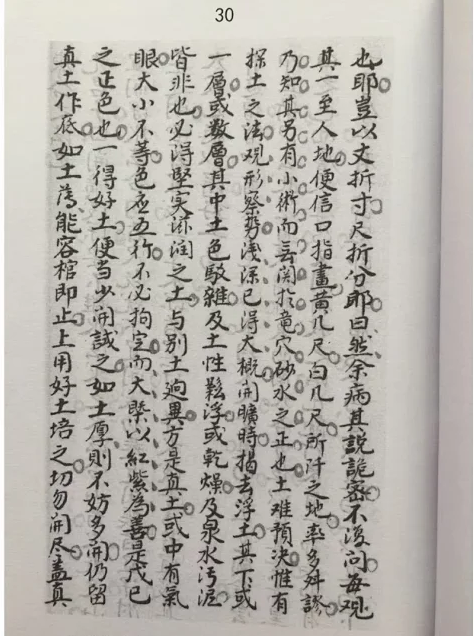 30
也耶豈以丈折寸尺折分耶曰然余病其説詭密不復问每观
其一至人地便信口指畫黄几尺白几尺所阡之地率多舛謬
乃知其另有小術而无闗扵竜穴砂水之正也土难預决惟有
探土之法观形察势浅深已得大概開曠時揭去浮土其下或
一層或数層其中土色駁雜及土性鬆浮或乾燥及泉水污泥
皆非也必得堅实滋润之土与别土逈異方是真土或中有氣
眼大小不等色应五行不必拘定而大槩以紅紫為善是戊己
之正色也一得好土便当少開試之如土厚則不妨多開仍留
真土作底如土薄能容棺即止上用好土培之切勿開尽盖真